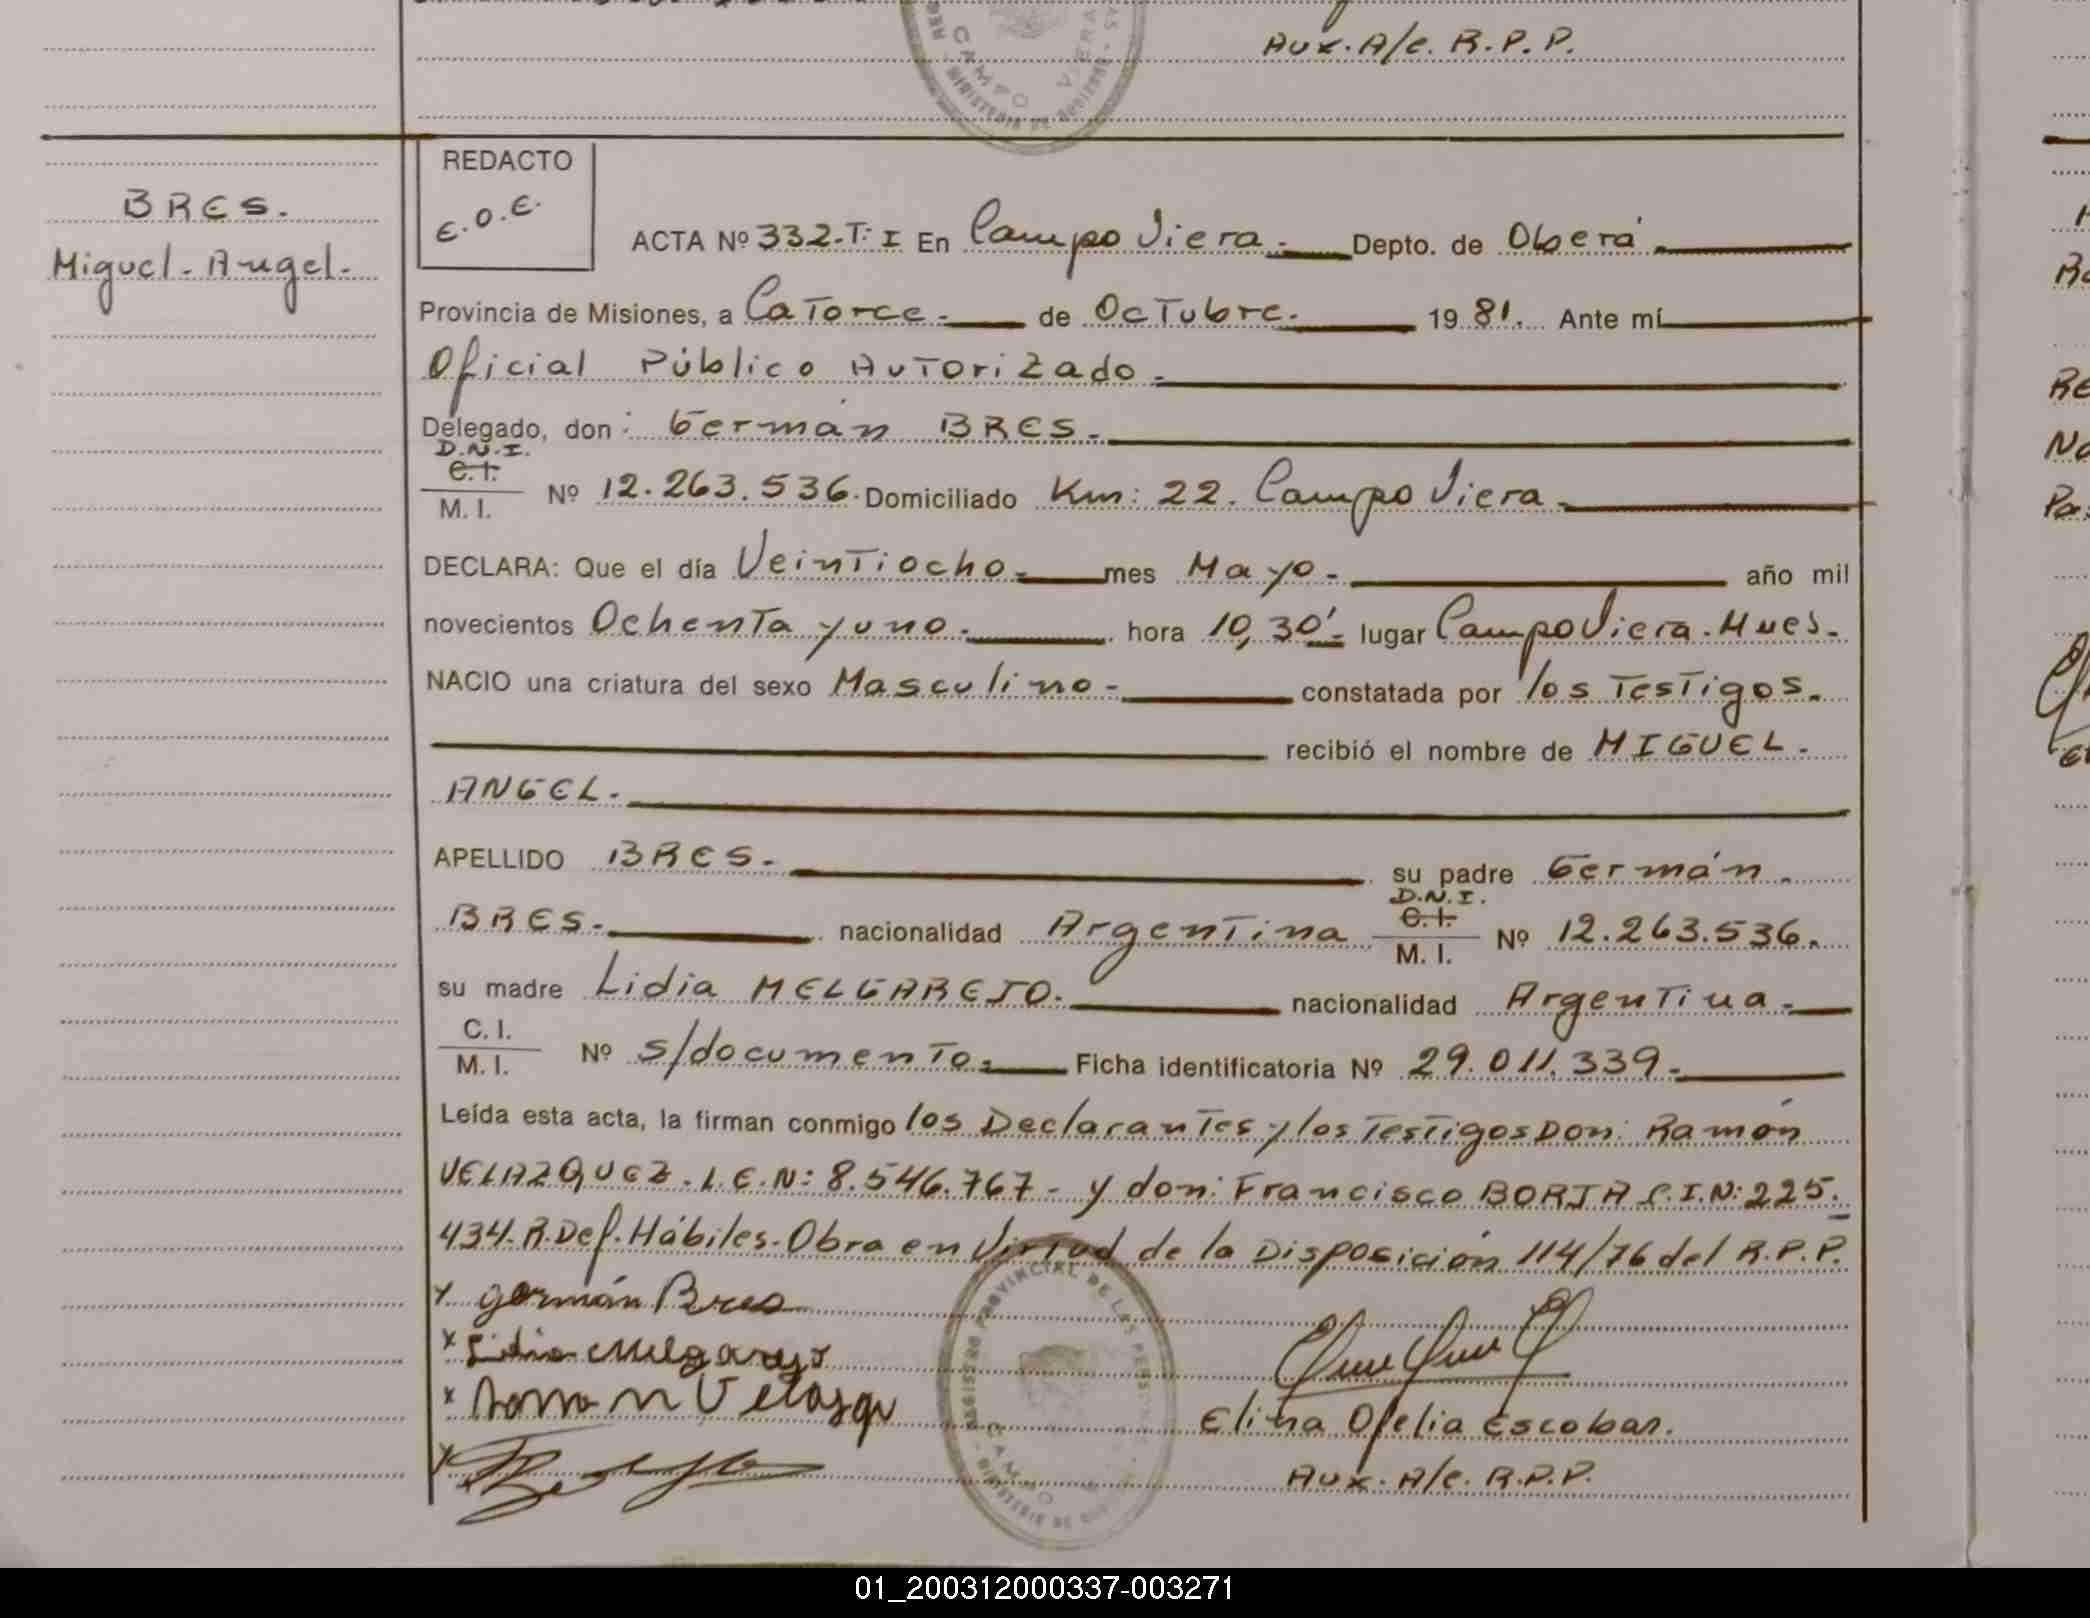 Aux. A/c. R.P.P.
BRES.
Miguel-Angel-
REDACTO
E.O.E.
ACTA Nº 332-T: I En Campo Viera.- Depto. de Oberá
Provincia de Misiones, a Catorce.- de Octubre. 1981. Ante mí
Oficial Público Autorizado.-
Delegado, don: Germán BRES.-
D.N.I.
C.I.
M. I.
Nº 12.263.536. Domiciliado Km: 22. Campo Viera.-
DECLARA: Que el día Veintiocho.- mes Mayo.- año mil
novecientos Ochenta y uno.- hora 10,30'- lugar Campo Viera. Mnes.
NACIO una criatura del sexo Masculino.- constatada por los Testigos.-
recibió el nombre de MIGUEL-
ANGEL.-
APELLIDO BRES.- su padre Germán.
BRES.- nacionalidad Argentina
D.N.I.
C.I.
M. I.
Nº 12.263.536.
su madre Lidia MELGAREJO.- nacionalidad Argentina.-
C. I.
M. I.
Nº s/documento.- Ficha identificatoria Nº 29.011.339.-
Leída esta acta, la firman conmigo los Declarantes y los Testigos Don: Ramón
VELAZQUEZ. L.E.N: 8.546.767- y don: Francisco BORJA C.I.N: 225.
434-R.Def. Hábiles-Obra en Virtud de la Disposición 114/76 del R.P.P.
x germán Bres
x Lidia Melgarejo
x Ramon Velasqu
x
Elina Ofelia Escobar.
Aux. A/c. R.P.P.
REGISTRO PROVINCIAL DE LAS PERSONAS
CAMPO VIERA
MINISTERIO DE GOBIERNO
01_200312000337-003271